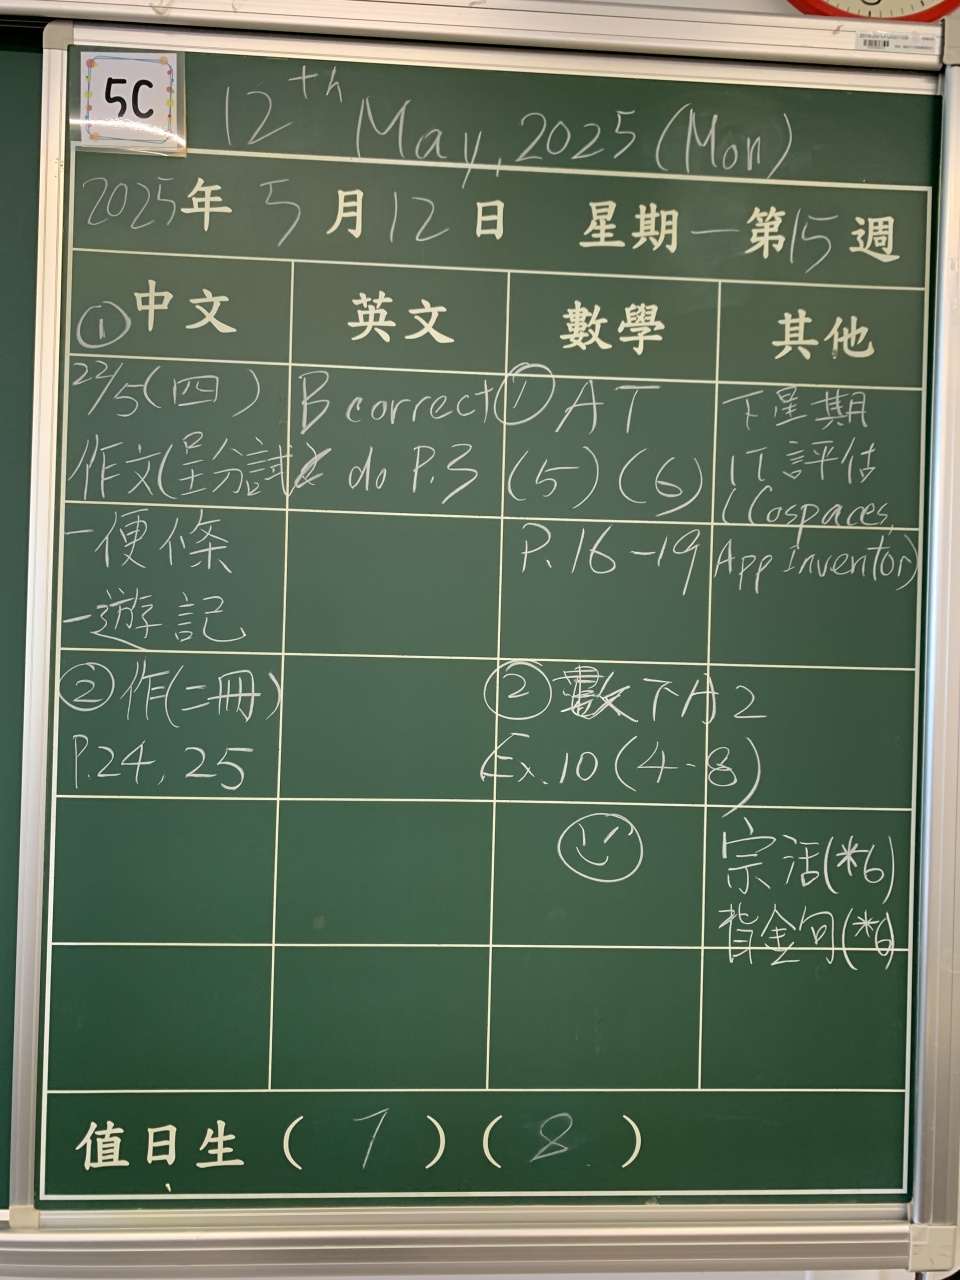 5C
12th May, 2025 (Mon)
2025年 5月12日 星期一 第15週
中文 英文 數學 其他
①
22/5(四)
作文(呈分試)
-便條
-遊記
②作(二冊)
P.24, 25
B correct
& do P.3
① AT
(5) (6)
P. 16-19
② 數下A2
Ex. 10 (4-8)
下星期
IT評估
(Cospaces,
App Inventor)
宗活(*6)
背金句(*6)
值日生 ( 7 ) ( 8 )